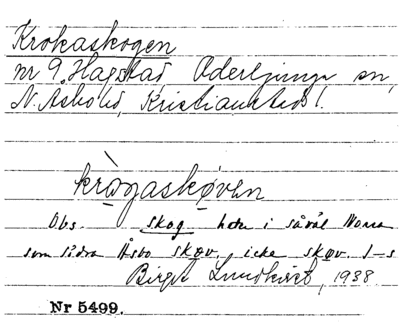 Krokaskogen
nr 9. Hagstad, Oderljunga sn,
N. Åsbo hd, Kristianstads l.
krògaskøven
Obs. skog heter i såväl Norra
som södra Åsbo skøv, icke skøv. 1-s
Birgit Lundkvist, 1938.
Nr 5499.